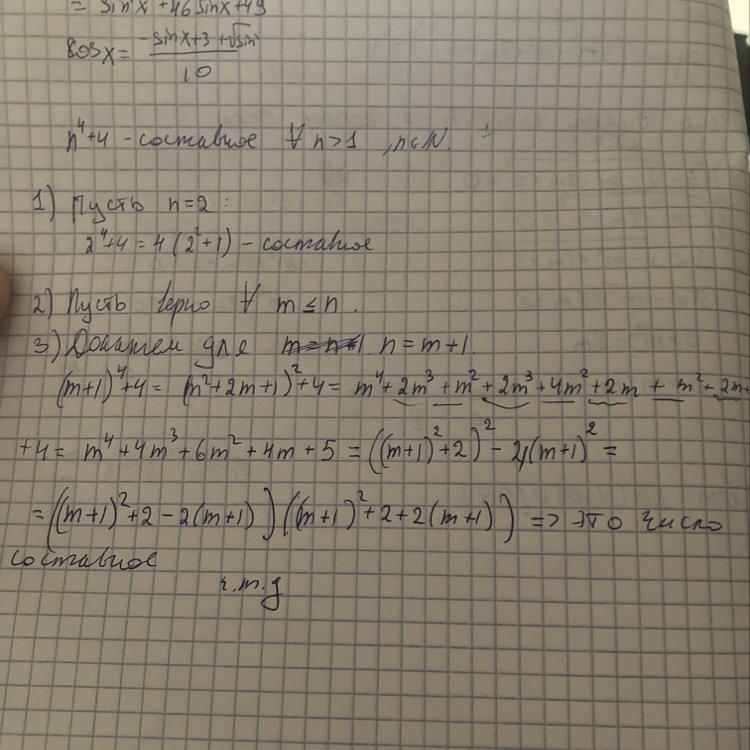 = sin²x + 46 sinx + 49
cosx = (-sinx + 3 + √sin)/10
n⁴+4 - составное ∀ n>1, n∈N.
1) Пусть n=2:
2⁴+4 = 4(2²+1) - составное
2) Пусть верно ∀ m ≤ n.
3) Докажем для n = m+1.
(m+1)⁴+4 = (m²+2m+1)²+4 = m⁴+2m³+m²+2m³+4m²+2m+m²+2m+
+4 = m⁴+4m³+6m²+4m+5 = ((m+1)²+2)² - 4(m+1)² =
= ((m+1)²+2-2(m+1))((m+1)²+2+2(m+1)) => это число
составное
ч.т.д